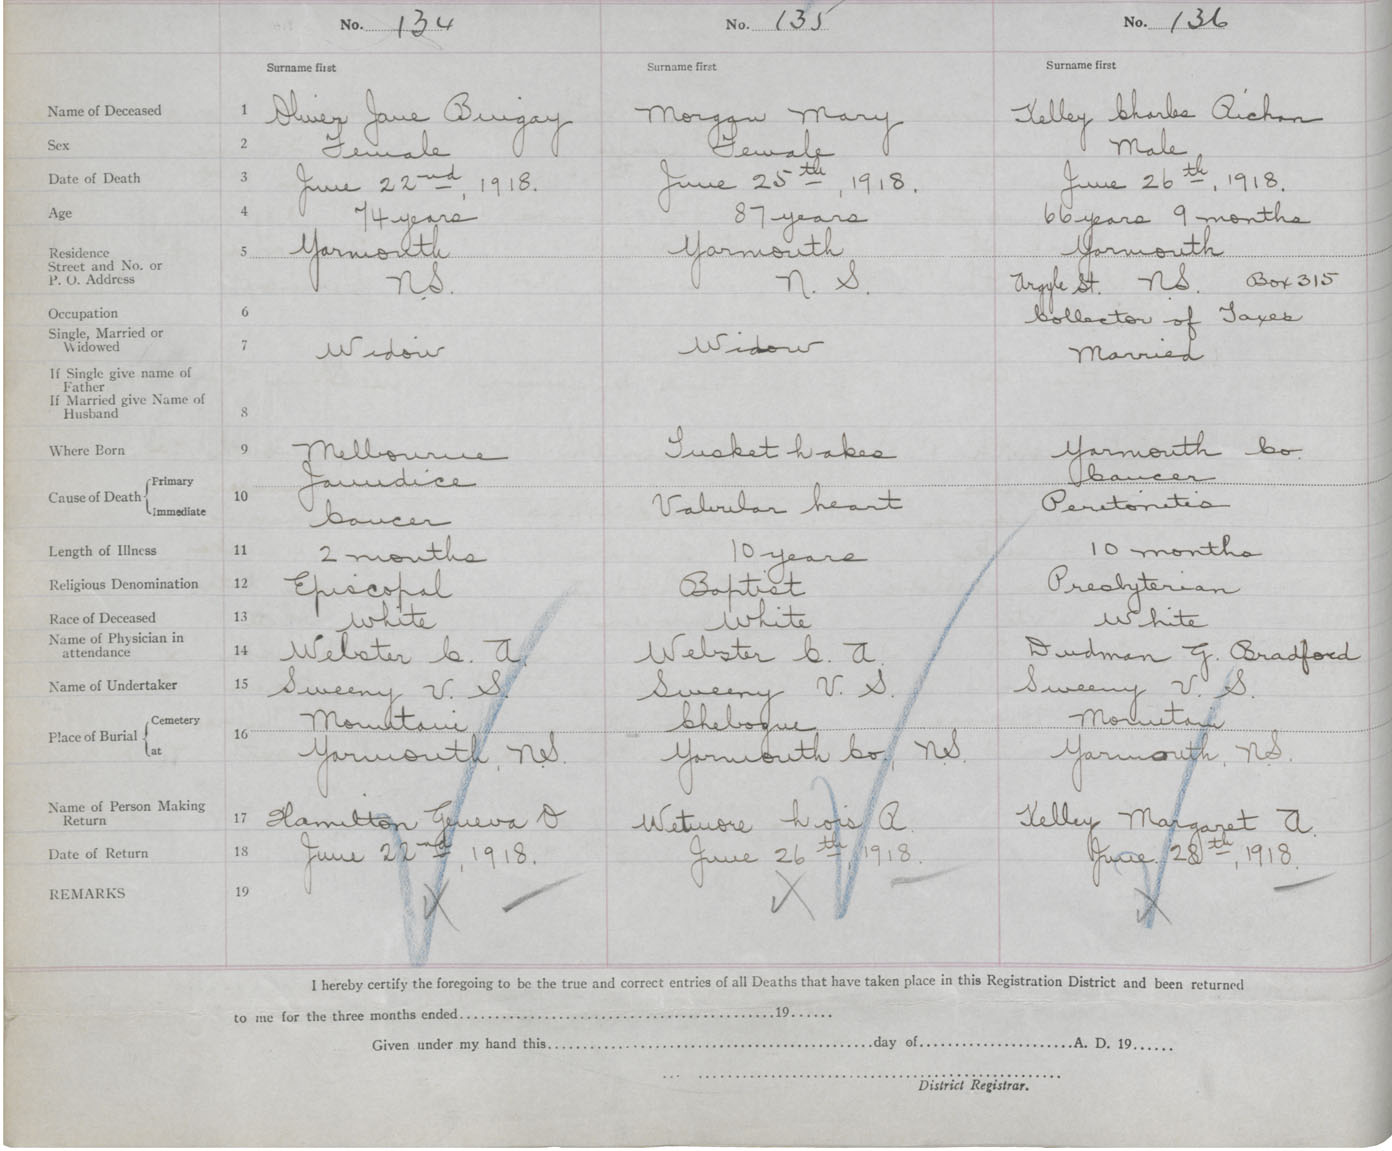 No. 134 No. 135 No. 136
Surname first Surname first Surname first
Name of Deceased 1 Oliver Jane Bingay Morgan Mary Kelley Charles Richan
Sex 2 Female Female Male
Date of Death 3 June 22nd, 1918. June 25th, 1918. June 26th, 1918.
Age 4 74 years 87 years 66 years 9 months
Residence 5 Yarmouth Yarmouth Yarmouth
Street and No. or
P. O. Address N.S. N. S. Argyle St. N.S. Box 315
Occupation 6 Collector of Taxes
Single, Married or
Widowed 7 Widow Widow Married
If Single give name of
Father
If Married give Name of
Husband 8
Where Born 9 Melbourne Tusket Lakes Yarmouth Co.
Primary Jaundice Cancer
Cause of Death 10 Valvular heart Peritonitis
Immediate Cancer
Length of Illness 11 2 months 10 years 10 months
Religious Denomination 12 Episcopal Baptist Presbyterian
Race of Deceased 13 White White White
Name of Physician in
attendance 14 Webster C. A. Webster C. A. Dudman G. Bradford
Name of Undertaker 15 Sweeny V. S. Sweeny V. S. Sweeny V. S.
Cemetery Mountain Chebogue Mountain
Place of Burial 16
at Yarmouth, N.S. Yarmouth Co., N.S. Yarmouth, N.S.
Name of Person Making
Return 17 Hamilton Geneva D Wetmore Lois R. Kelley Margaret A.
Date of Return 18 June 22nd, 1918. June 26th, 1918. June 28th, 1918.
REMARKS 19
I hereby certify the foregoing to be the true and correct entries of all Deaths that have taken place in this Registration District and been returned
to me for the three months ended..........19......
Given under my hand this..........day of..........A. D. 19......
District Registrar.